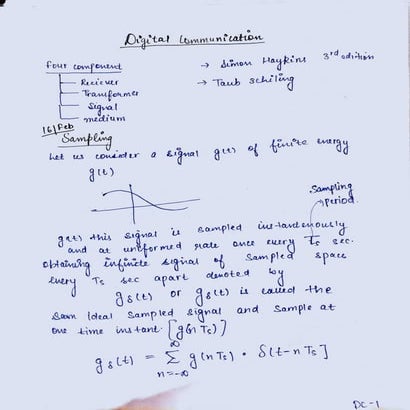 Digital Communication
four component
Reciever
Transformer
Signal
medium
→ Simon Haykins 3rd edition
→ Taub schiling
16/Feb
Sampling
Let us consider a signal g(t) of finite energy
g(t)
Sampling
period
g(t) this signal is sampled instanteneously
and at uniformed rate once every Ts sec.
obtaining infinite signal of sampled space
every Ts sec apart denoted by
gδ(t) or gδ(t) is called the
Ideal Sampled signal and sample at
one time instant. [g(nTs)]
gδ(t) = ∞Σn=-∞ g(nTs) • δ(t-nTs]
DC-1